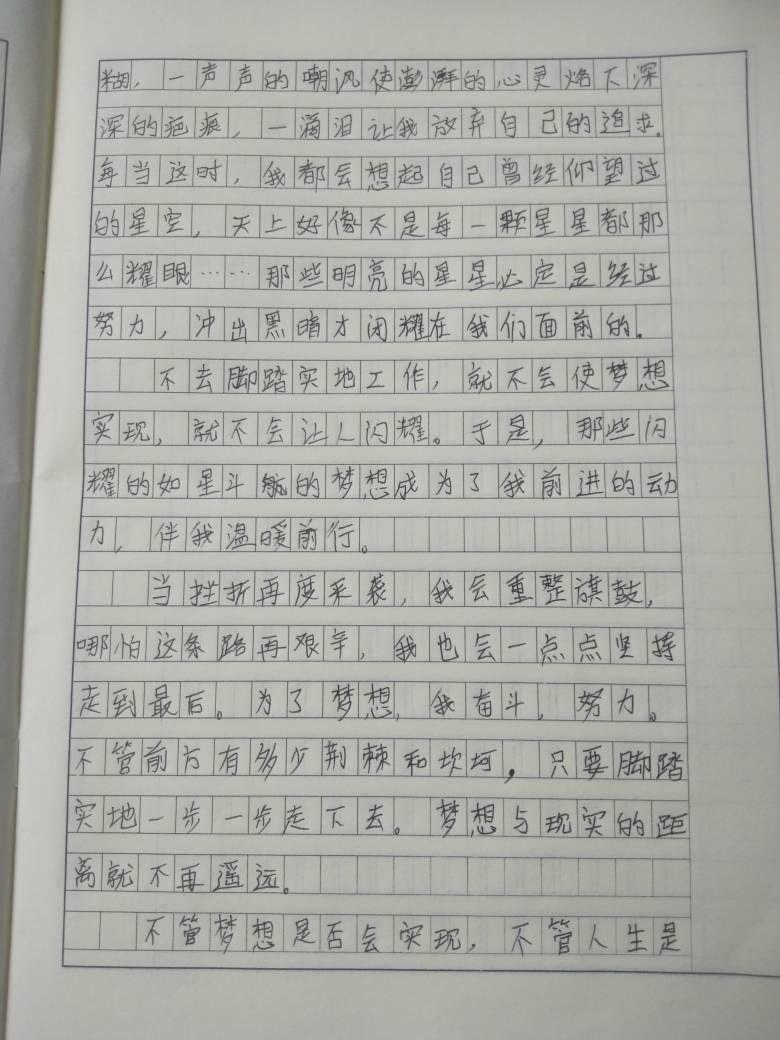 糊，一声声的嘲讽使澎湃的心灵烙下深
深的疤痕，一滴泪让我放弃自己的追求。
每当这时，我都会想起自己曾经仰望过
的星空，天上好像不是每一颗星星都那
么耀眼……那些明亮的星星必定是经过
努力，冲出黑暗才闪耀在我们面前的。
不去脚踏实地工作，就不会使梦想
实现，就不会让人闪耀。于是，那些闪
耀的如星斗般的梦想成为了我前进的动
力，伴我温暖前行。
当挫折再度来袭，我会重整旗鼓，
哪怕这条路再艰辛，我也会一点点坚持
走到最后。为了梦想，我奋斗，努力。
不管前方有多少荆棘和坎坷，只要脚踏
实地一步一步走下去。梦想与现实的距
离就不再遥远。
不管梦想是否会实现，不管人生是